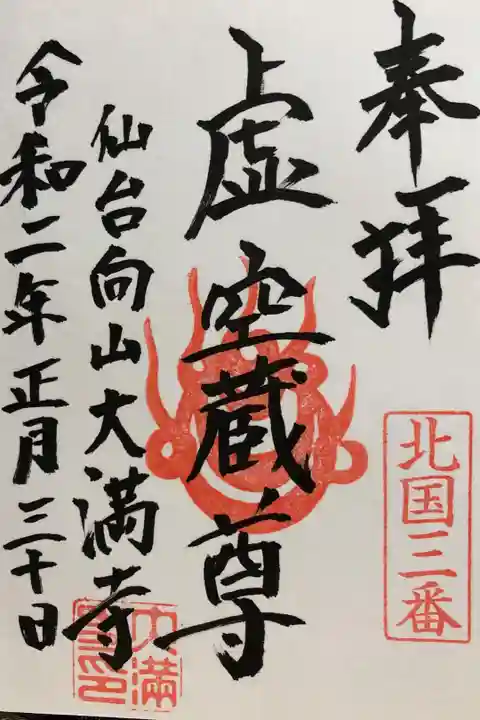 奉拝
北国三番
虚空蔵尊
仙台向山大満寺
令和二年正月三十日